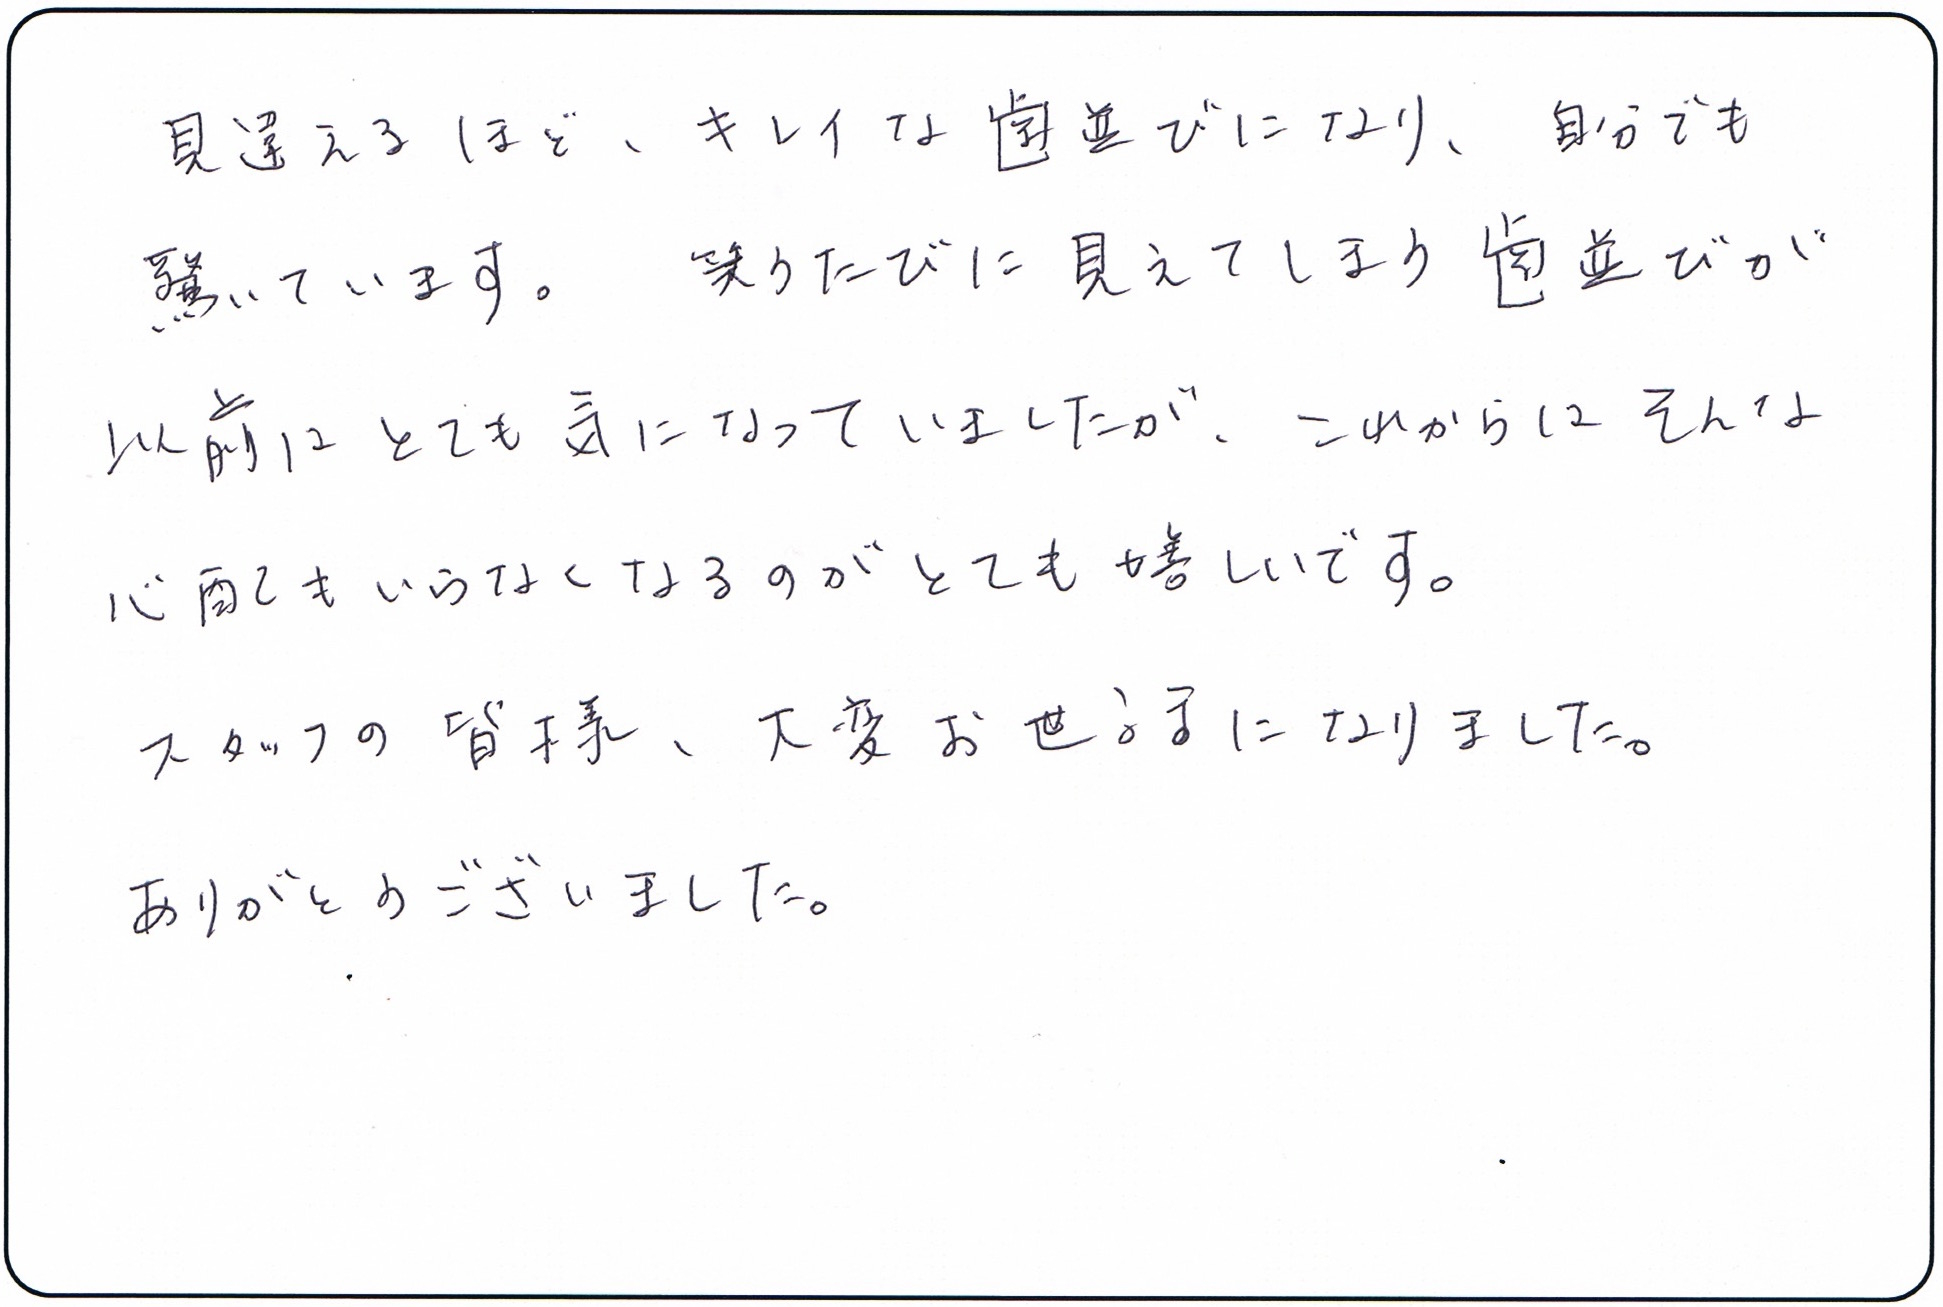 見違えるほど、キレイな歯並びになり、自分でも
驚いています。 笑うたびに見えてしまう歯並びが
以前はとても気になっていましたが、これからはそんな
心配もいらなくなるのがとても嬉しいです。
スタッフの皆様、大変お世話になりました。
ありがとうございました。